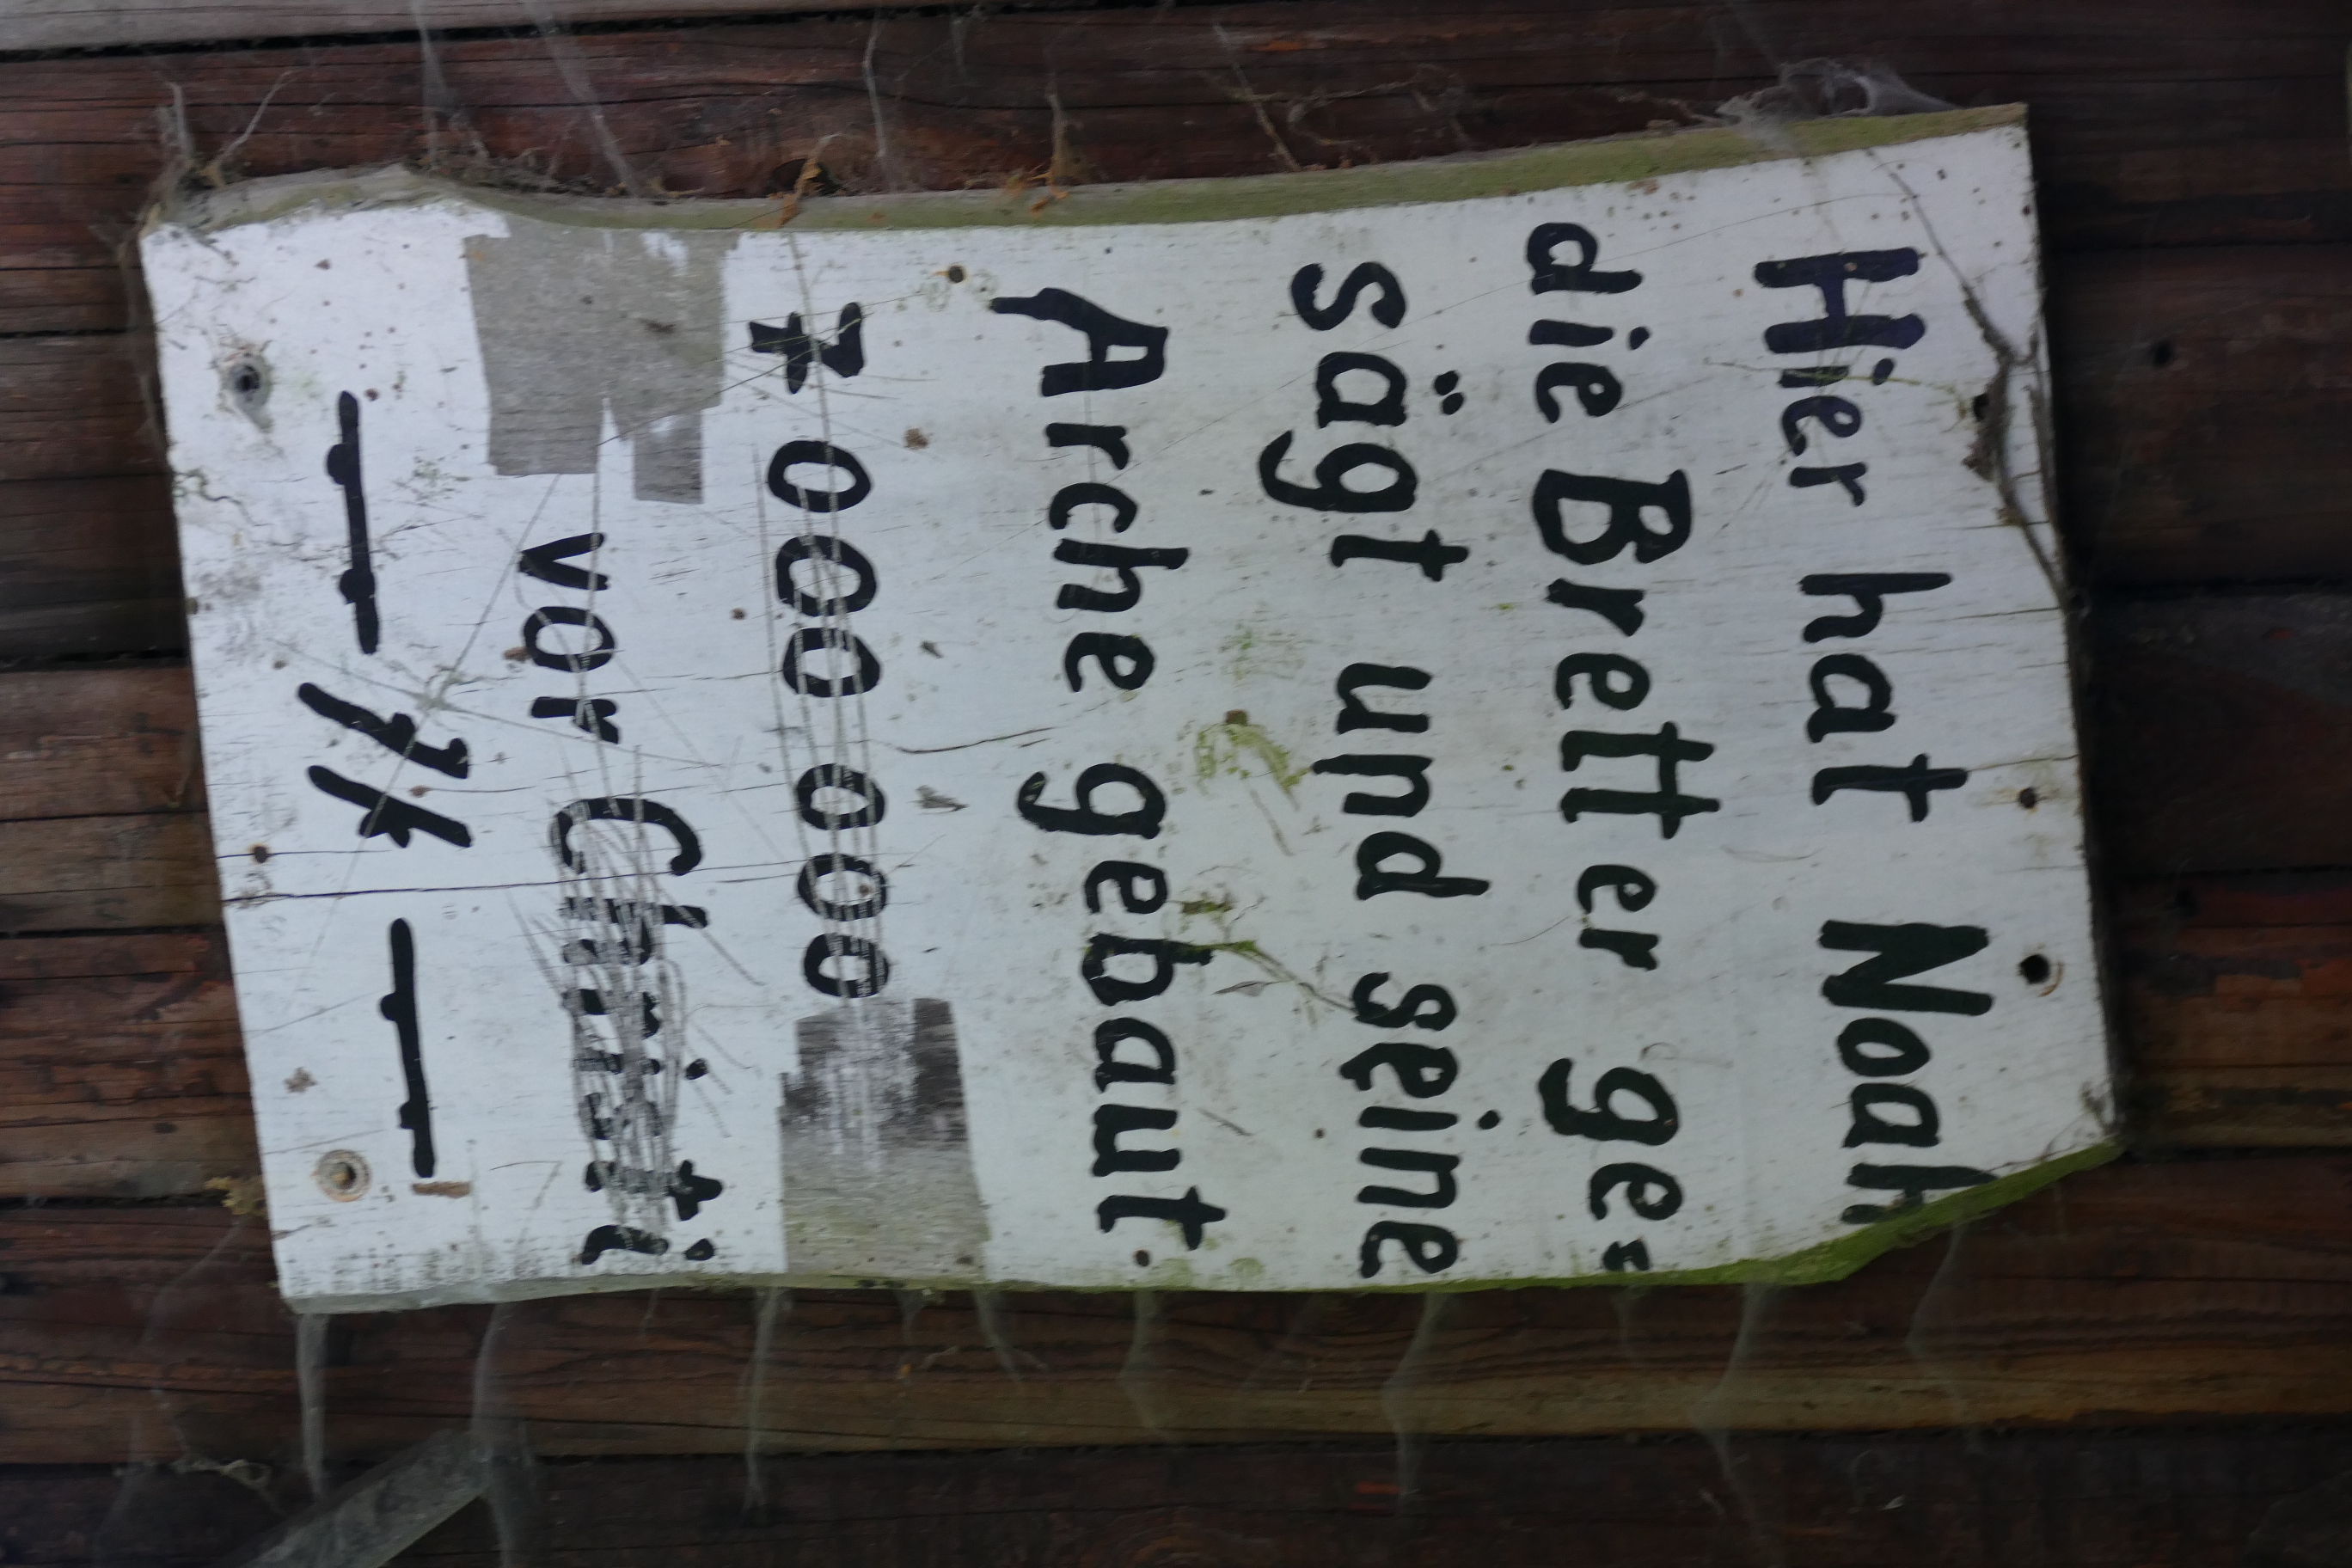 Hier hat Noah
die Bretter ge=
sägt und seine
Arche gebaut
7 000 000
vor Christi